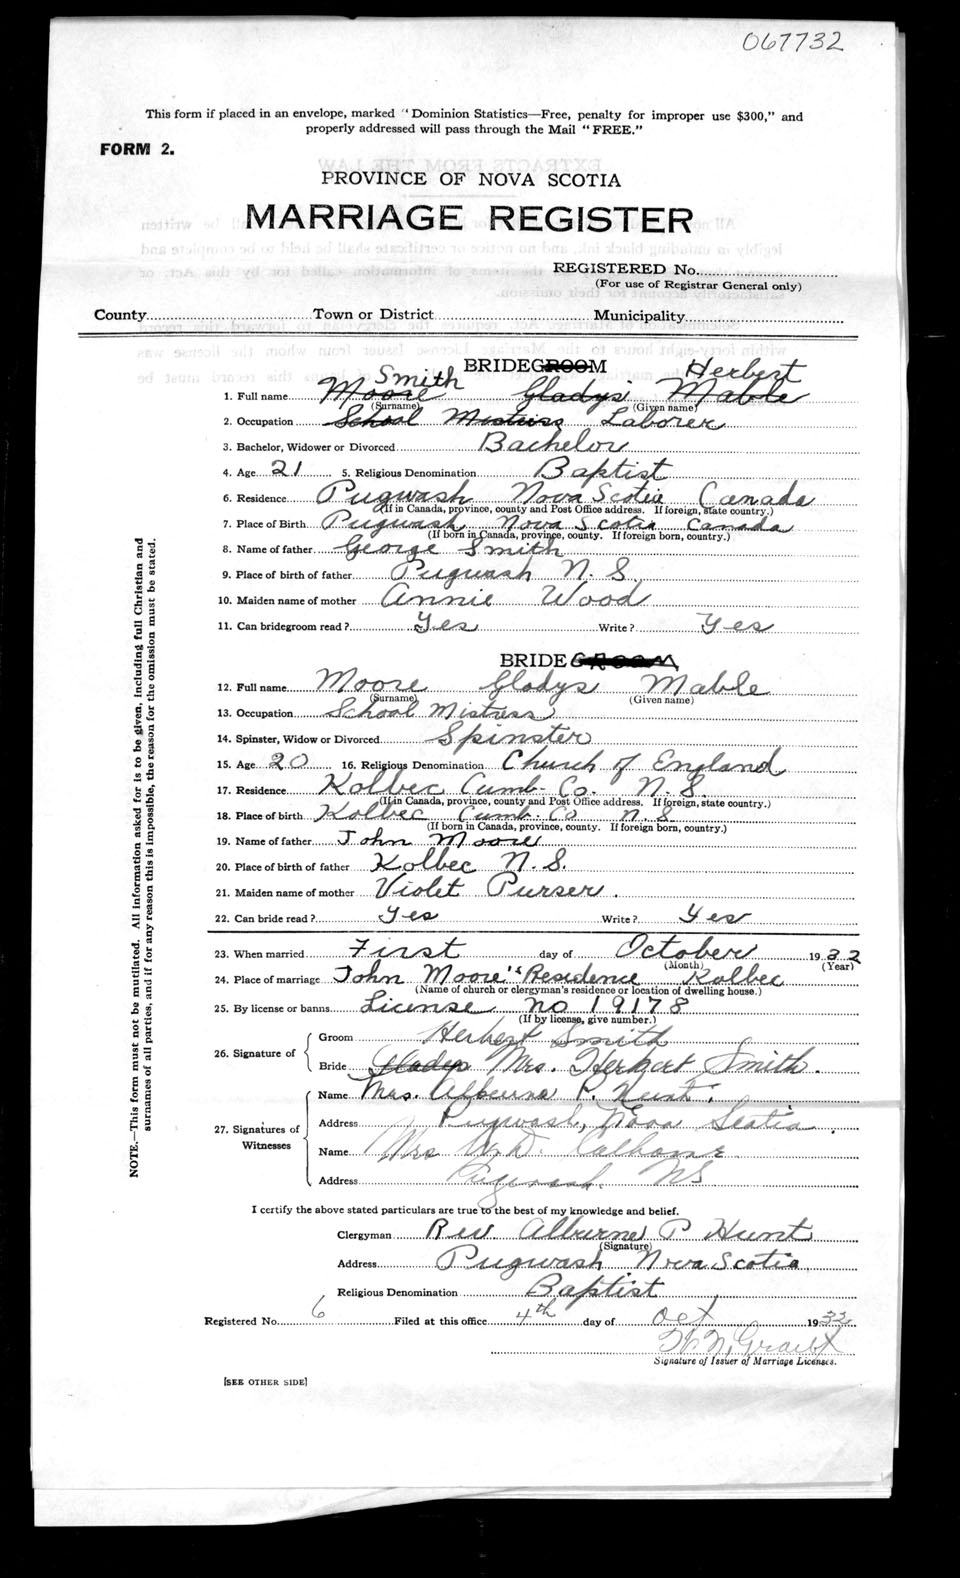 067732
This form if placed in an envelope, marked "Dominion Statistics—Free, penalty for improper use $300," and
properly addressed will pass through the Mail "FREE."
FORM 2.
PROVINCE OF NOVA SCOTIA
MARRIAGE REGISTER
REGISTERED No.
(For use of Registrar General only)
County Town or District Municipality
BRIDEGROOM
Smith Herbert
1. Full name Moore Gladys Mable
(Surname) (Given name)
2. Occupation School Mistress Laborer
3. Bachelor, Widower or Divorced Bachelor
4. Age 21 5. Religious Denomination Baptist
6. Residence Pugwash Nova Scotia Canada
(If in Canada, province, county and Post Office address. If foreign, state country.)
7. Place of Birth Pugwash Nova Scotia Canada
(If born in Canada, province, county. If foreign born, country.)
8. Name of father George Smith
9. Place of birth of father Pugwash N. S.
10. Maiden name of mother Annie Wood
11. Can bridegroom read? Yes Write? Yes
BRIDEGROOM
12. Full name Moore Gladys Mable
(Surname) (Given name)
13. Occupation School Mistress
14. Spinster, Widow or Divorced Spinster
15. Age 20 16. Religious Denomination Church of England
17. Residence Kolbec Cumb. Co. N. S.
(If in Canada, province, county and Post Office address. If foreign, state country.)
18. Place of birth Kolbec Cumb. Co N. S
(If born in Canada, province, county. If foreign born, country.)
19. Name of father John Moore
20. Place of birth of father Kolbec N. S.
21. Maiden name of mother Violet Purser.
22. Can bride read? Yes Write? Yes
23. When married First day of October 1932
(Month) (Year)
24. Place of marriage John Moore's Residence Kolbec
(Name of church or clergyman's residence or location of dwelling house.)
25. By license or banns License no 19178
(If by license, give number.)
Groom Herbert Smith
26. Signature of
Bride Gladys Mrs. Herbert Smith.
Name Mrs. Alburne P. Hunt.
Address Pugwash, Nova Scotia.
27. Signatures of
Witnesses
Name Mrs W. D. Calhoun
Address Pugwash. NS
I certify the above stated particulars are true to the best of my knowledge and belief.
Clergyman Rev Alburne P Hunt
(Signature)
Address Pugwash Nova Scotia
Religious Denomination Baptist
Registered No. 6 Filed at this office 4th day of Oct 1932
Signature of Issuer of Marriage Licenses.
[SEE OTHER SIDE]
NOTE.—This form must not be mutilated. All information asked for is to be given, including full Christian and
surnames of all parties, and if for any reason this is impossible, the reason for the omission must be stated.